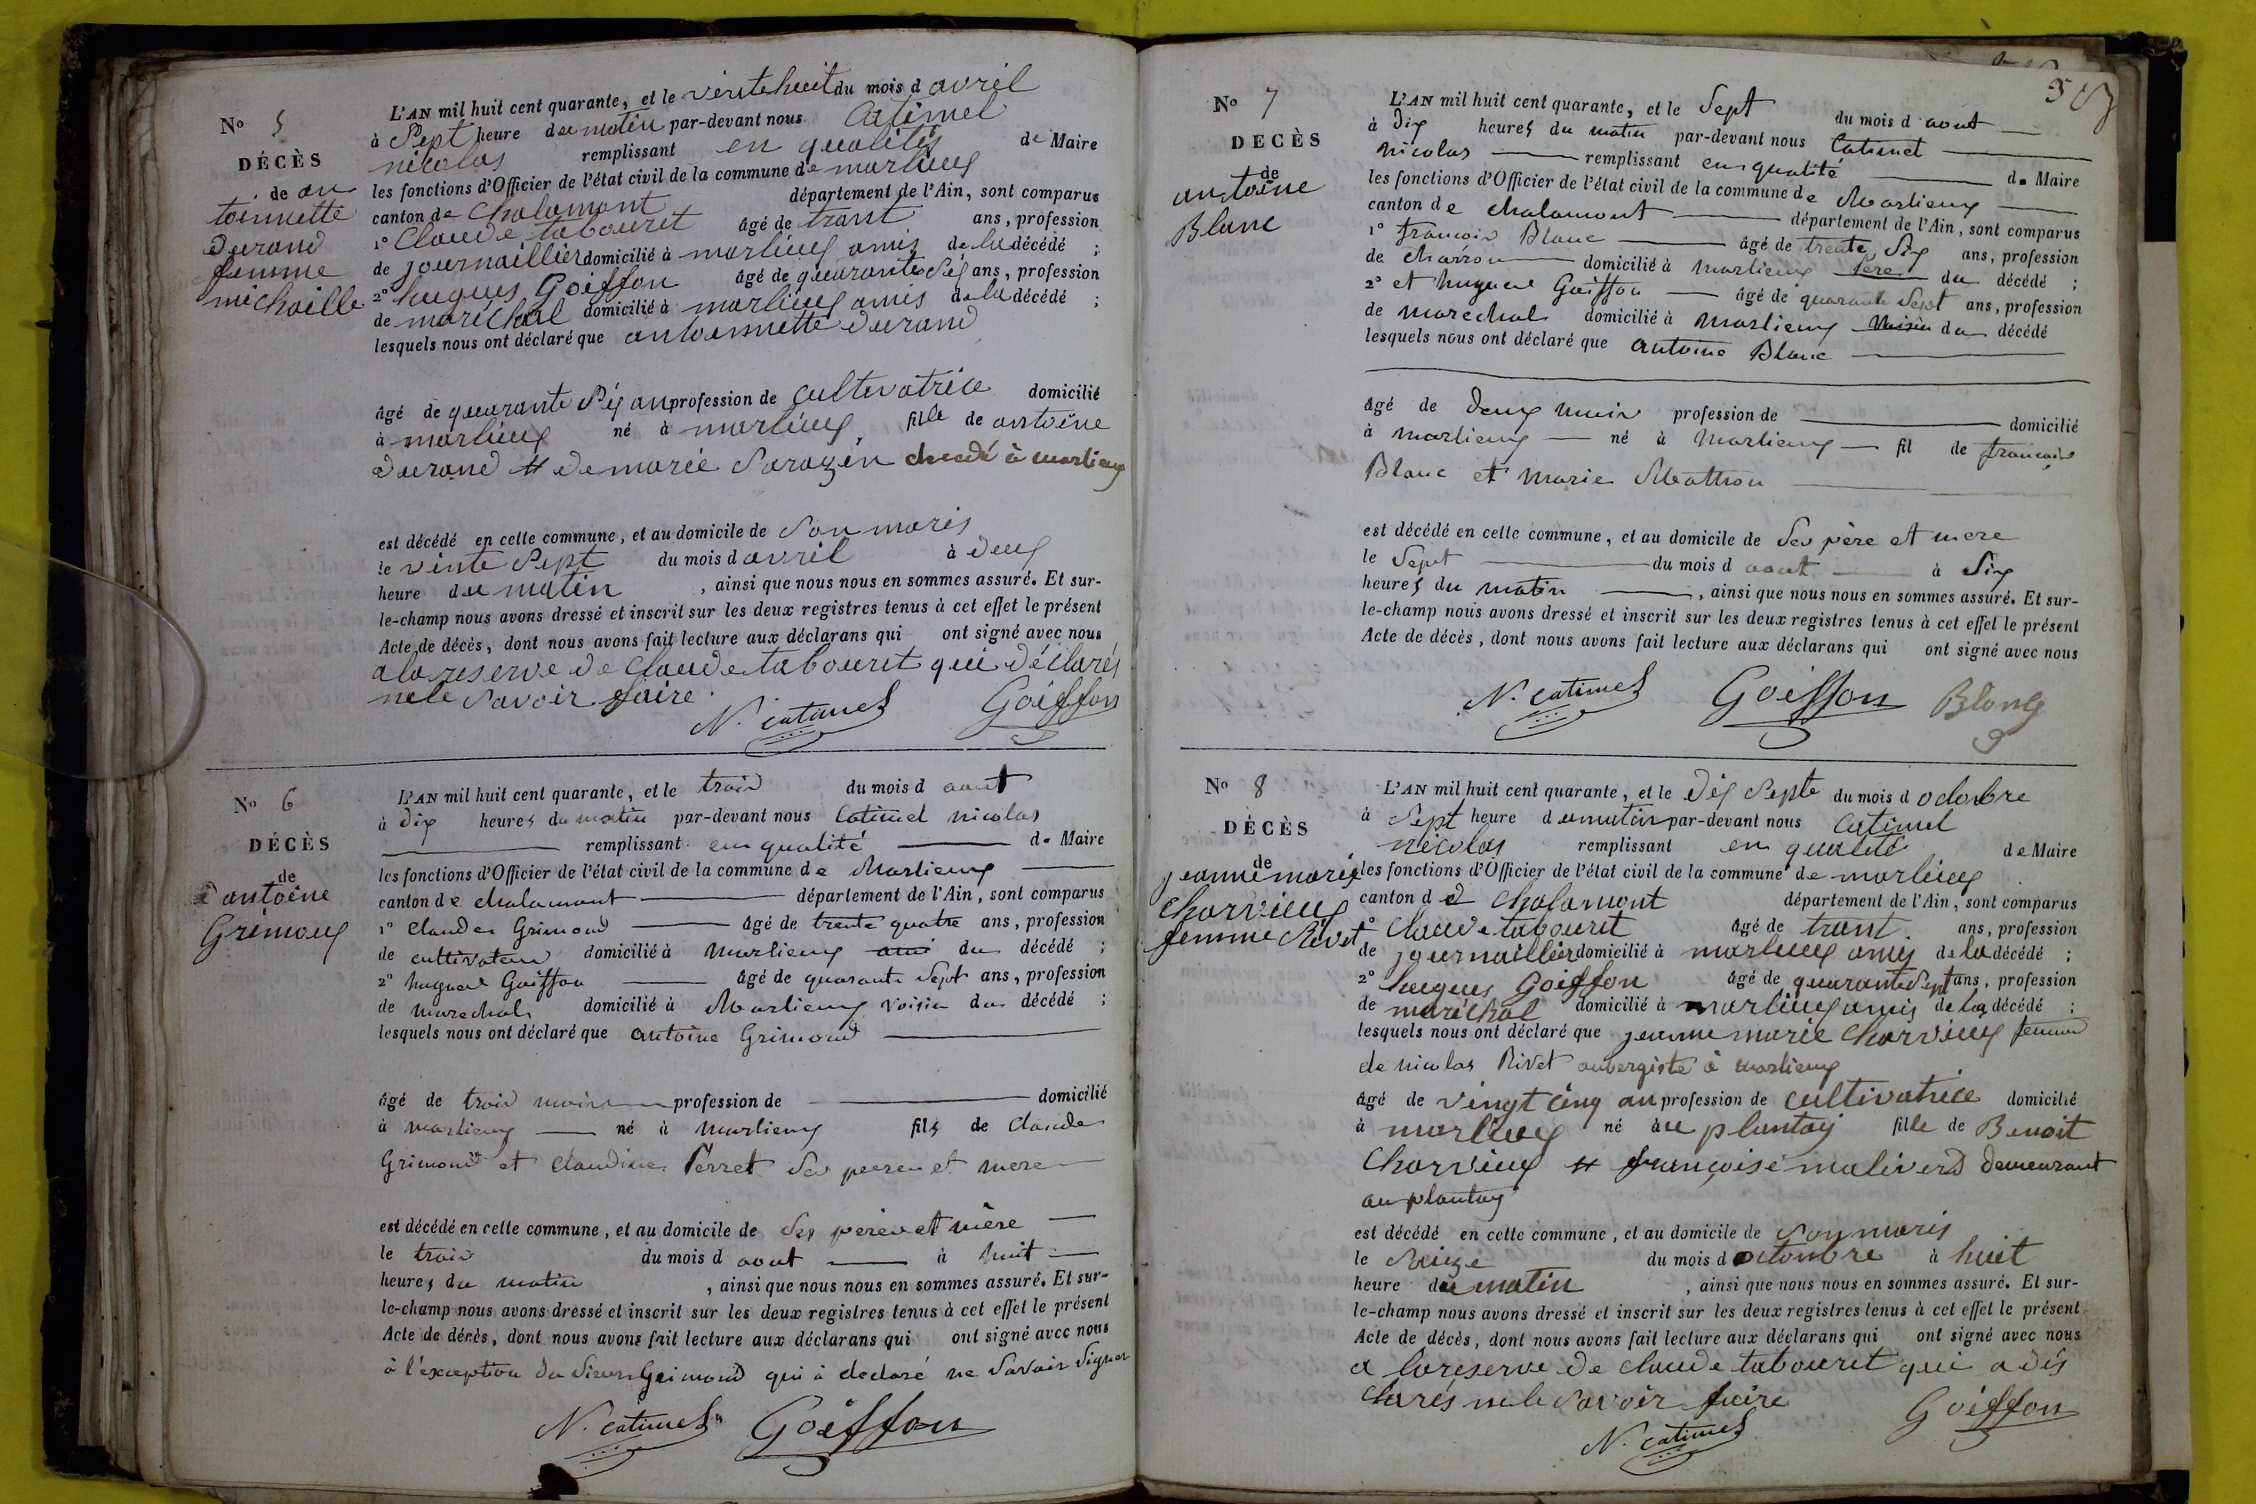 No 5
DÉCÈS
de an
toinnette
durand
femme
michaille
L'AN mil huit cent quarante, et le vintehuit du mois d avril
à Sept heure du matin par-devant nous Catimel
nicolas remplissant en qualités de Maire
les fonctions d'Officier de l'état civil de la commune de marlieux
canton de Chalamont département de l'Ain, sont comparus
1° Claude tabouret âgé de trant ans, profession
de journaillier domicilié à marlieux amis de la décédé ;
2° hugues Goiffon âgé de quarante Six ans, profession
de maréchal domicilié à marlieux amis de la décédé ;
lesquels nous ont déclaré que antoinnette durand
âgé de quarante Six an profession de cultivatrice domicilié
à marlieux né à marlieux, fille de antoine
durand et de marie Sarazin decedé à marlieux
est décédé en celle commune, et au domicile de Son maris
le vinte Sept du mois d avril à deux
heure du matin , ainsi que nous nous en sommes assuré. Et sur-
le-champ nous avons dressé et inscrit sur les deux registres tenus à cet effet le présent
Acte de décès, dont nous avons fait lecture aux déclarans qui ont signé avec nous
a la reserve de Claude tabouret qui déclarés
ne le Savoir faire.
N. Catimel Goiffon
No 6
DÉCÈS
de
antoine
Grimoux
L'AN mil huit cent quarante, et le trois du mois d aout
à dix heures du matin par-devant nous Catimel nicolas
remplissant en qualité de Maire
les fonctions d'Officier de l'état civil de la commune de Marlieux
canton de chalamont département de l'Ain, sont comparus
1° Claude Grimond âgé de trente quatre ans, profession
de cultivateur domicilié à Marlieux ami du décédé ;
2° hugues Goiffon âgé de quarante Sept ans, profession
de marechal domicilié à Marlieux voisin du décédé ;
lesquels nous ont déclaré que antoine Grimond
âgé de trois mois profession de domicilié
à marlieux né à Marlieux fils de Claude
Grimond et Claudine Perret Ses peres et mere
est décédé en celle commune, et au domicile de Ses pères et mère
le trois du mois d aout à huit
heures du matin , ainsi que nous nous en sommes assuré. Et sur-
le-champ nous avons dressé et inscrit sur les deux registres tenus à cet effet le présent
Acte de décès, dont nous avons fait lecture aux déclarans qui ont signé avec nous
à l'exception du Sieur Grimond qui à declaré ne Savoir Signer
N. Catimel Goiffon
No 7
DÉCÈS
de
antoine
Blanc
L'AN mil huit cent quarante, et le Sept du mois d aout
à dix heures du matin par-devant nous Catimel
Nicolas remplissant en qualité de Maire
les fonctions d'Officier de l'état civil de la commune de Marlieux
canton de chalamont département de l'Ain, sont comparus
1° francois Blanc âgé de trente Six ans, profession
de charron domicilié à Marlieux Père du décédé ;
2° et hugues Goiffon âgé de quarante Sept ans, profession
de marechal domicilié à Marlieux Voisin du décédé
lesquels nous ont déclaré que antoine Blanc
âgé de deux mois profession de domicilié
à Marlieux né à Marlieux fil de francois
Blanc et Marie
est décédé en celle commune, et au domicile de Ses père et mere
le Sept du mois d aout à Six
heures du matin , ainsi que nous nous en sommes assuré. Et sur-
le-champ nous avons dressé et inscrit sur les deux registres tenus à cet effet le présent
Acte de décès, dont nous avons fait lecture aux déclarans qui ont signé avec nous
N. Catimel Goiffon Blong
No 8
DÉCÈS
de
jeanne marie
Charvieux
femme Rivet
L'AN mil huit cent quarante, et le dix Septe du mois d octobre
à Sept heure du matin par-devant nous Catimel
nicolas remplissant en qualité de Maire
les fonctions d'Officier de l'état civil de la commune de marlieux
canton de Chalamont département de l'Ain, sont comparus
1° Claude tabouret âgé de trant ans, profession
de journaillier domicilié à marlieux amis de la décédé ;
2° hugues Goiffon âgé de quarante Sept ans, profession
de maréchal domicilié à marlieux amis de la décédé ;
lesquels nous ont déclaré que jeanne marie Charvieux femme
de nicolas Rivet aubergiste à Marlieux
âgé de vingt cinq an profession de cultivatrice domicilié
à marlieux né au plantay fille de Benoit
Charvieux et françoise maliverd demeurant
au plantay
est décédé en cette commune, et au domicile de Son maris
le Seize du mois d octombre à huit
heure du matin , ainsi que nous nous en sommes assuré. Et sur-
le-champ nous avons dressé et inscrit sur les deux registres tenus à cet effet le présent
Acte de décès, dont nous avons fait lecture aux déclarans qui ont signé avec nous
a la reserve de Claude tabouret qui a dés
clarés ne le Savoir faire
N. Catimel Goiffon